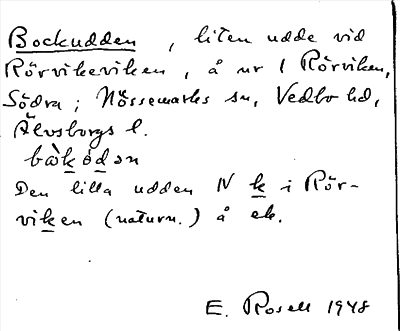 Bockudden, liten udde vid
Rörvikeviken, å nr 1 Rörviken,
Södra; Nössemarks sn, Vedbo hd,
Älvsborgs l.
båkɷ́dən
Den lilla udden N k i Rör-
viken (naturn.) å ek.
E. Rosell 1948